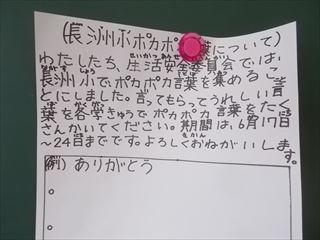 (長洲小ポカポカ言葉について)
わたしたち、生活安全委員会では、
せいかつあんぜん
長洲小でポカポカ言葉を集めるこ
とにしました。言ってもらってうれしい言
葉を各学きゅうでポカポカ言葉をたく
さんかいてください。期間は、6月17日
きかん
〜24日までです。よろしくおねがいします。
(例) ありがとう
。
。